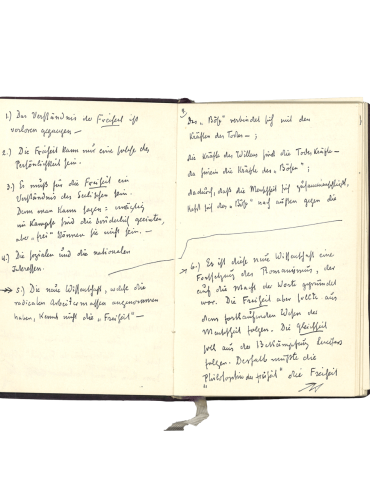 1.) Das Verständnis der Freiheit ist
verloren gegangen —
2.) Die Freiheit kann nur eine solche der
Persönlichkeit sein.
3.) Es muß für die Freiheit ein
Verständnis des Seelischen sein.
Denn man kann sagen: 
im Kampfe sind die brüderlich geeinten,
aber „frei“ können sie nicht sein. —
4.) Die sozialen und die nationalen
Interessen.
5.) Die neue Wissenschaft, welche die
radicalen Arbeitermassen angenommen
haben, kennt nicht die „Freiheit“ —
3.
Das „Böse“ verbindet sich mit den
Kräften des Todes — ;
die Kräfte des Willens sind die Todeskräfte —
da sind die Kräfte des „Bösen“ ;
dadurch, daß die Menschheit sich
das „Böse“ nach außen gegen die
6.) Es ist diese neue Wissenschaft eine
Fortsetzung des Romanismus, der
auf die Macht der Worte gegründet
war. Die Freiheit aber sollte aus
dem Wesen der
Menschheit folgen. Die Gleichheit
soll aus der Bekämpfung
folgen. Deshalb mußte die
„Philosophie der Freiheit“ die Freiheit